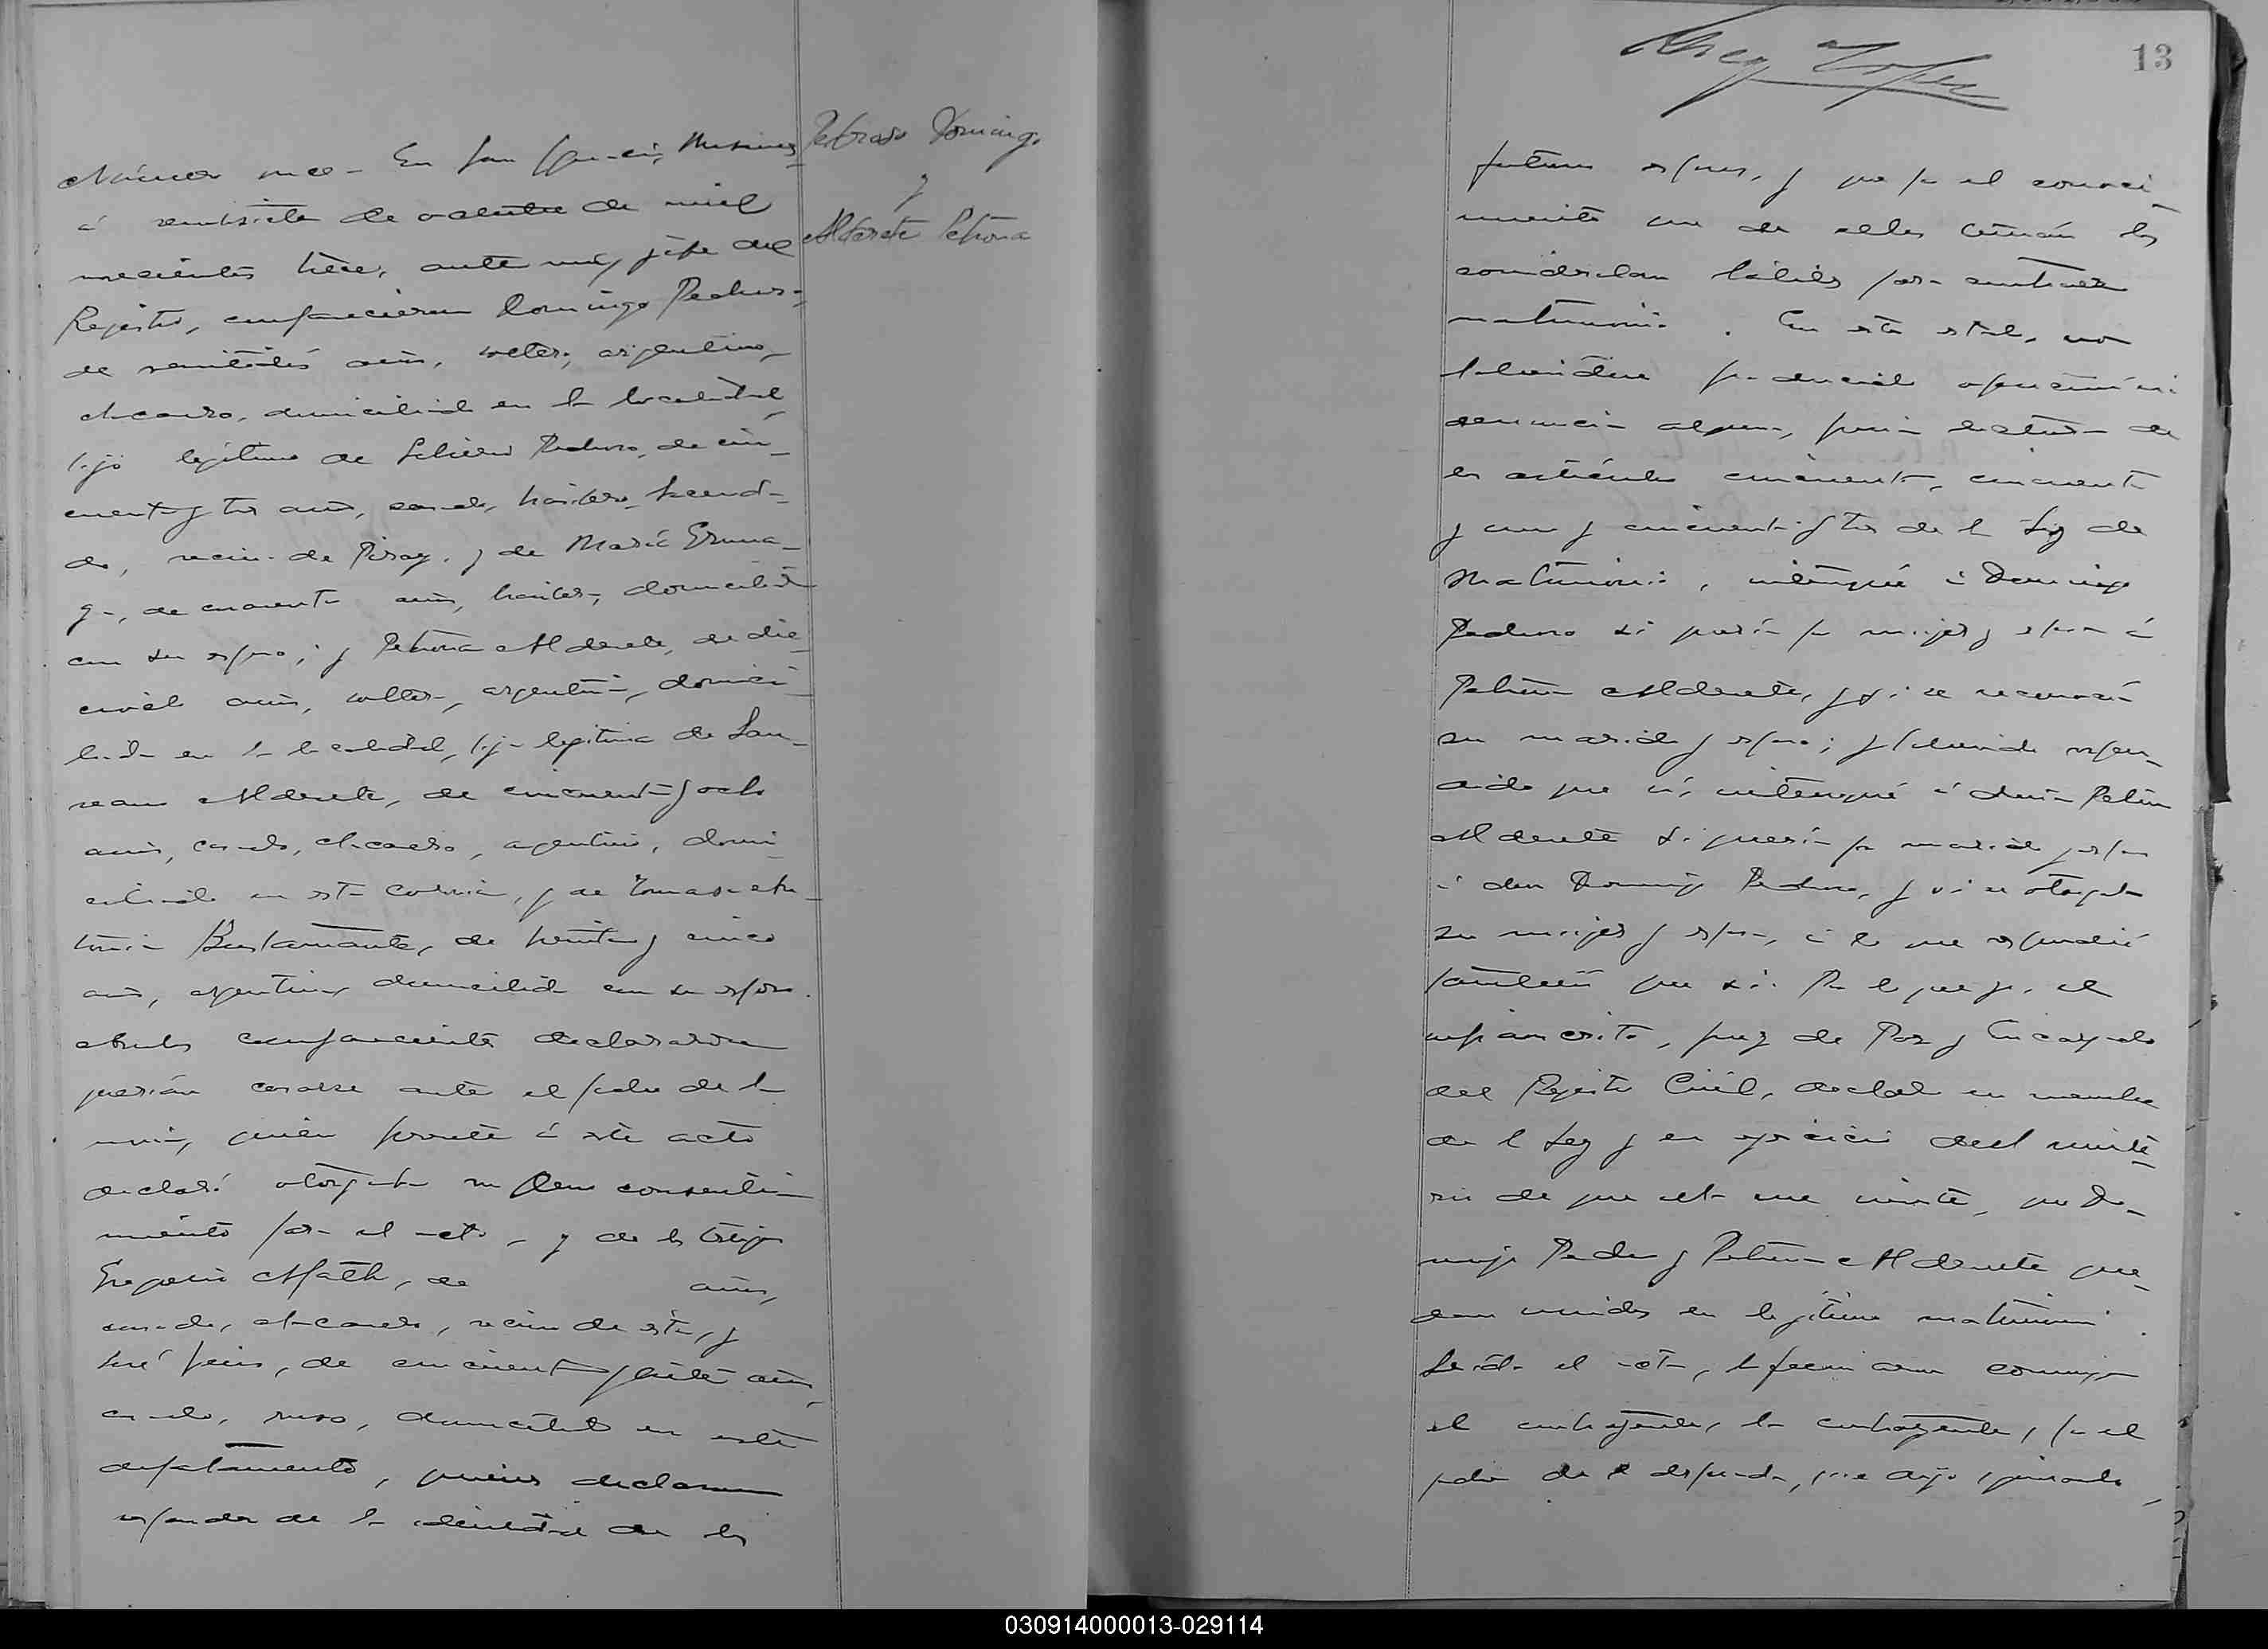 Número once - En San Ignacio, Misiones
á veintisiete de octubre de mil
novecientos trece, ante mí, jefe del
Rejistro, comparecieron Domingo Pedroso,
de veintitrés años, soltero, argentino,
chacarero, domiciliado en la localidad,
hijo legítimo de Pedroso, de cin-
cuenta y tres años, casado, hacenda-
do, vecino de Piray, y de María
de cuarenta años, domiciliada
con su esposo; y Petrona Alderete, de die-
años, soltera, argentina, domici-
liada en la localidad, hija legítima de
Alderete, de cincuenta y ocho
años, casado, chacarero, argentino, domi-
ciliado en esta colonia, y de Tomasa An-
tonia Bustamante, de treinta y cinco
años, argentina, domiciliada con su esposo.
Ambos comparecientes declararon
querían casarse ante el padre de la
novia, quien presente á este acto
declaró otorgaba su pleno consenti-
miento para el acto, y de los testigos
Gregorio de años,
casado, chacarero, vecino de esta, y
José de cincuenta y siete años,
casado, ruso, domiciliado en este
departamento, quienes declararon
responder de la identidad de los
Pedroso Domingo
y
Alderete Petrona
13
futuros esposos, y que por el conoci-
miento que de ellos tenían los
consideraban hábiles para contraer
matrimonio. En este estado, no
habiéndose producido oposición ni
denuncia alguna, previa lectura de
los artículos cincuenta, cincuenta
y uno y cincuenta y tres de la Ley de
Matrimonio, interrogué á Domingo
Pedroso si quería por mujer y esposa á
Petrona Alderete, y si se reconocía
su marido y esposo; y habiendo respon-
dido que sí, interrogué á doña Petrona
Alderete si quería por marido y esposo
á don Domingo Pedroso, y si se otorgaba
su mujer y esposa, á lo que respondió
también que sí. Por lo que yo, el
infrascrito, Juez de Paz y Encargado
del Rejistro Civil, declaro en nombre
de la Ley y en ejercicio del minis-
terio de que ella me inviste, que Do-
mingo Pedroso y Petrona Alderete que-
dan unidos en legítimo matrimonio.
Leída el acta, la firmaron conmigo
el contrayente, la contrayente, por el
padre de la desposada, que dijo ignorarlo,
030914000013-029114